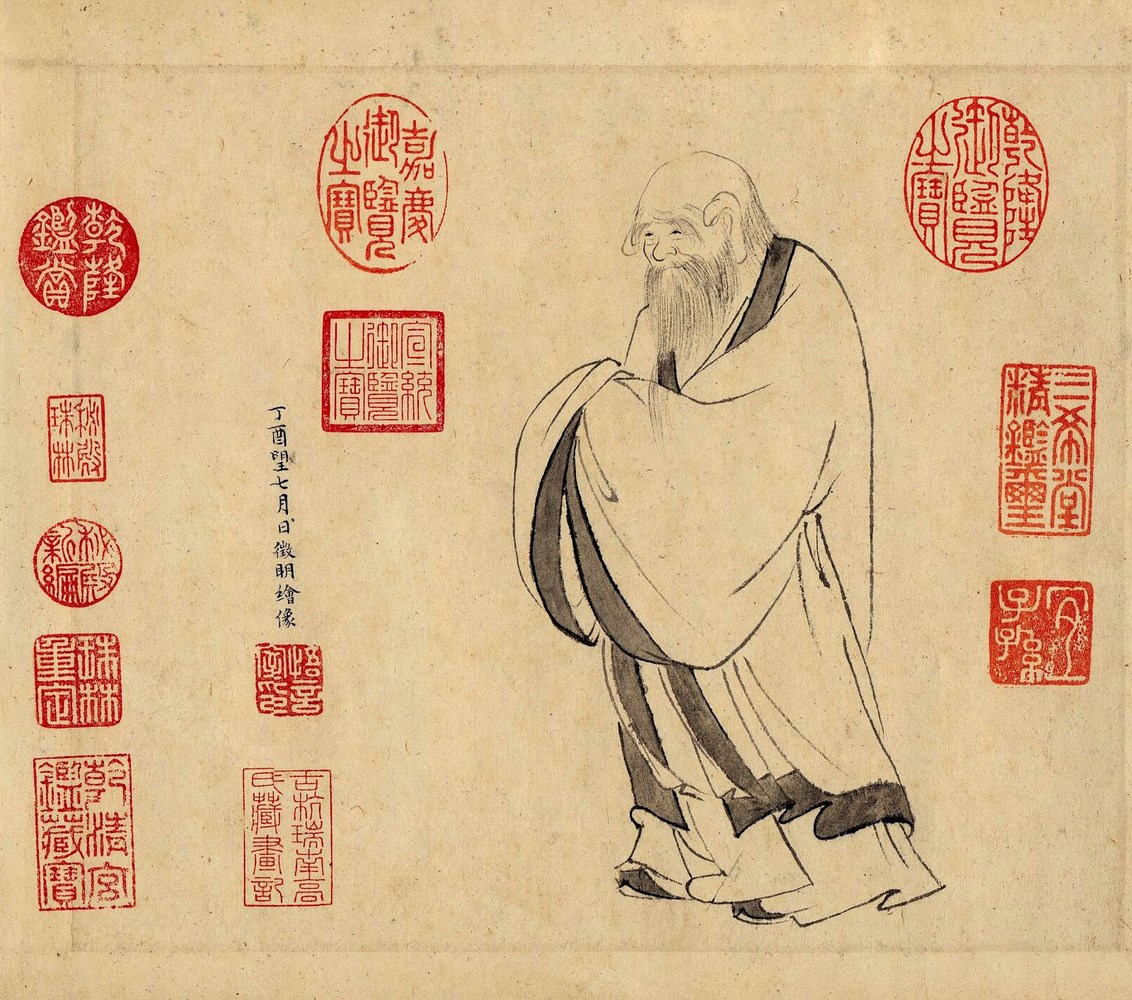 乾隆
御覽
之寶
三希堂
精鑑璽
宜
子孫
嘉慶
御覽
之寶
宣統
御覽
之寶
丁酉望七月日徵明繪像
悟言
室印
古杭瑞南高
氏藏畫記
乾隆
鑑賞
秘殿
珠林
秘殿
新編
珠林
重定
乾清宮
鑑藏寶